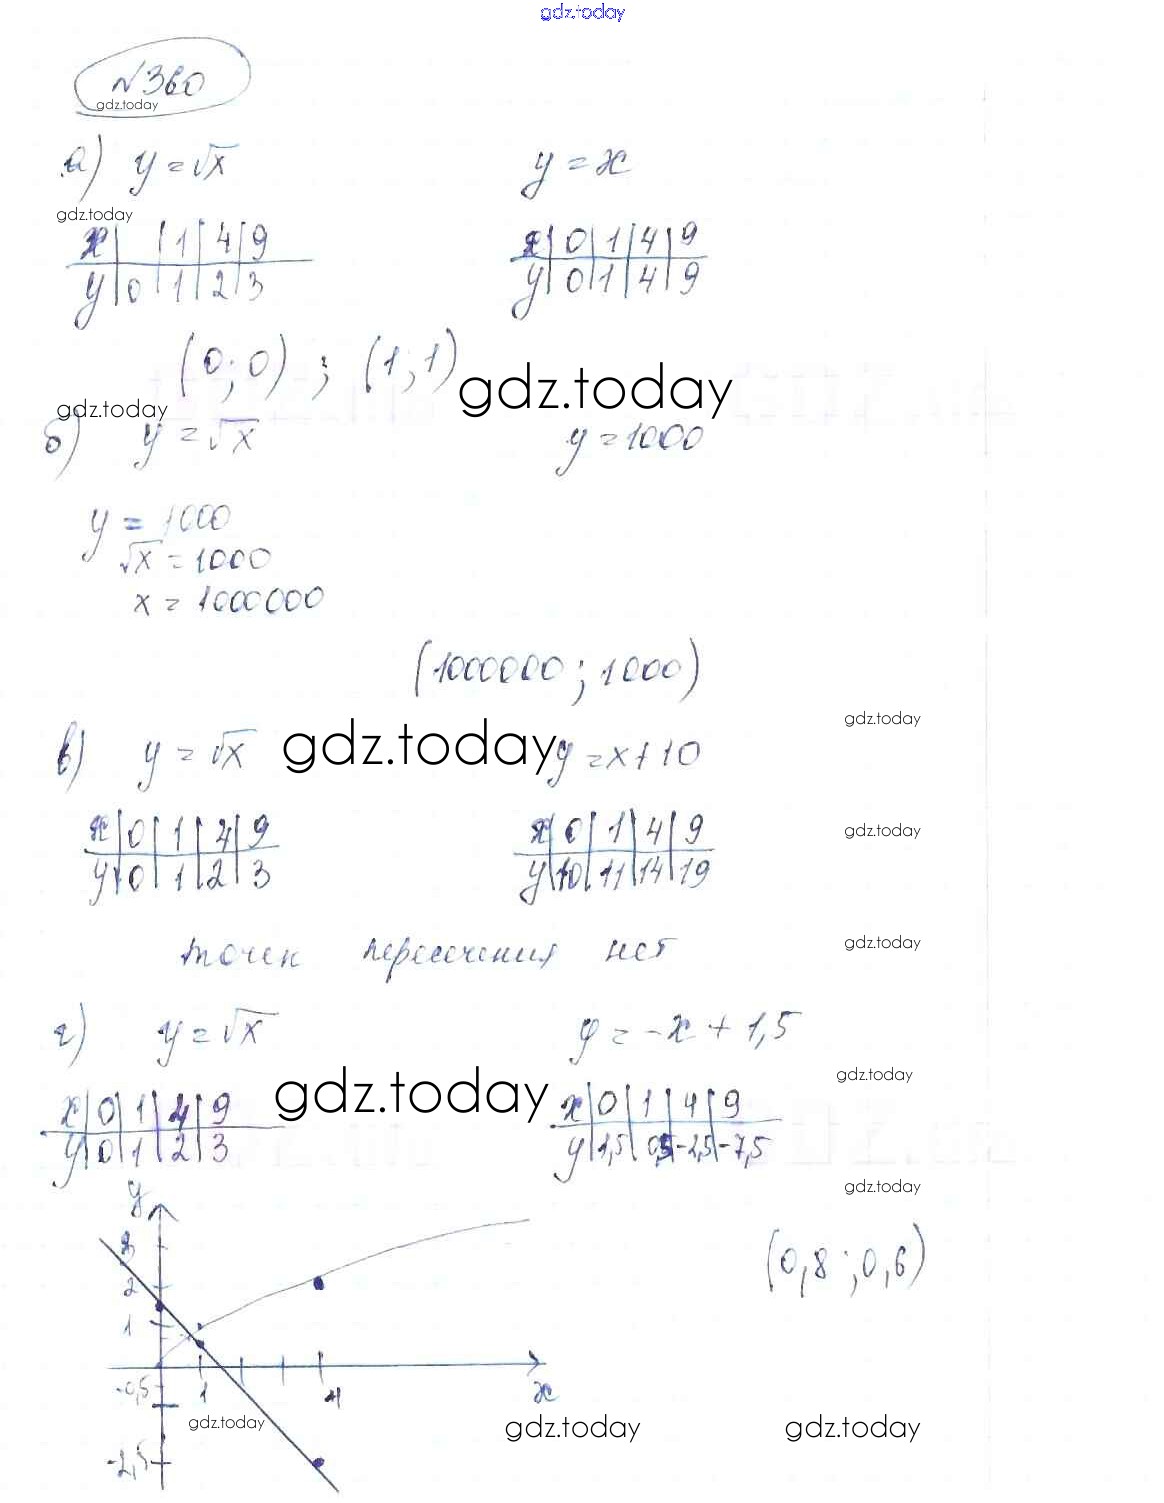 gdz.today
№360
gdz.today
а) y = √x y = x
gdz.today
x | | 1 | 4 | 9 x | 0 | 1 | 4 | 9
y | 0 | 1 | 2 | 3 y | 0 | 1 | 4 | 9
(0; 0) ; (1; 1)
gdz.today
gdz.today
б) y = √x y = 1000
y = 1000
√x = 1000
x = 1000000
(1000000; 1000)
gdz.today
в) y = √x gdz.today y = x + 10
x | 0 | 1 | 4 | 9 x | 0 | 1 | 4 | 9 gdz.today
y | 0 | 1 | 2 | 3 y | 10 | 11 | 14 | 19
точек пересечения нет gdz.today
г) y = √x y = -x + 1,5
gdz.today gdz.today
x | 0 | 1 | 4 | 9 x | 0 | 1 | 4 | 9
y | 0 | 1 | 2 | 3 y | 1,5 | 0,5 | -2,5 | -7,5
gdz.today
y
3
(0,8; 0,6)
2
1
-0,5 1 4 x
gdz.today gdz.today gdz.today
-2,5